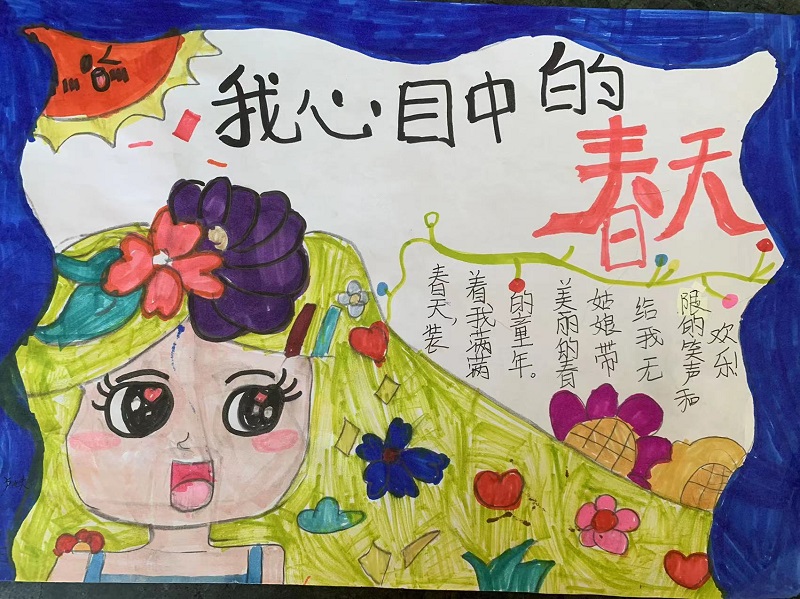 我心目中的
春天
春天，装
着我满满
的童年。
美丽的春
姑娘带
给我无
限的笑声和
欢乐